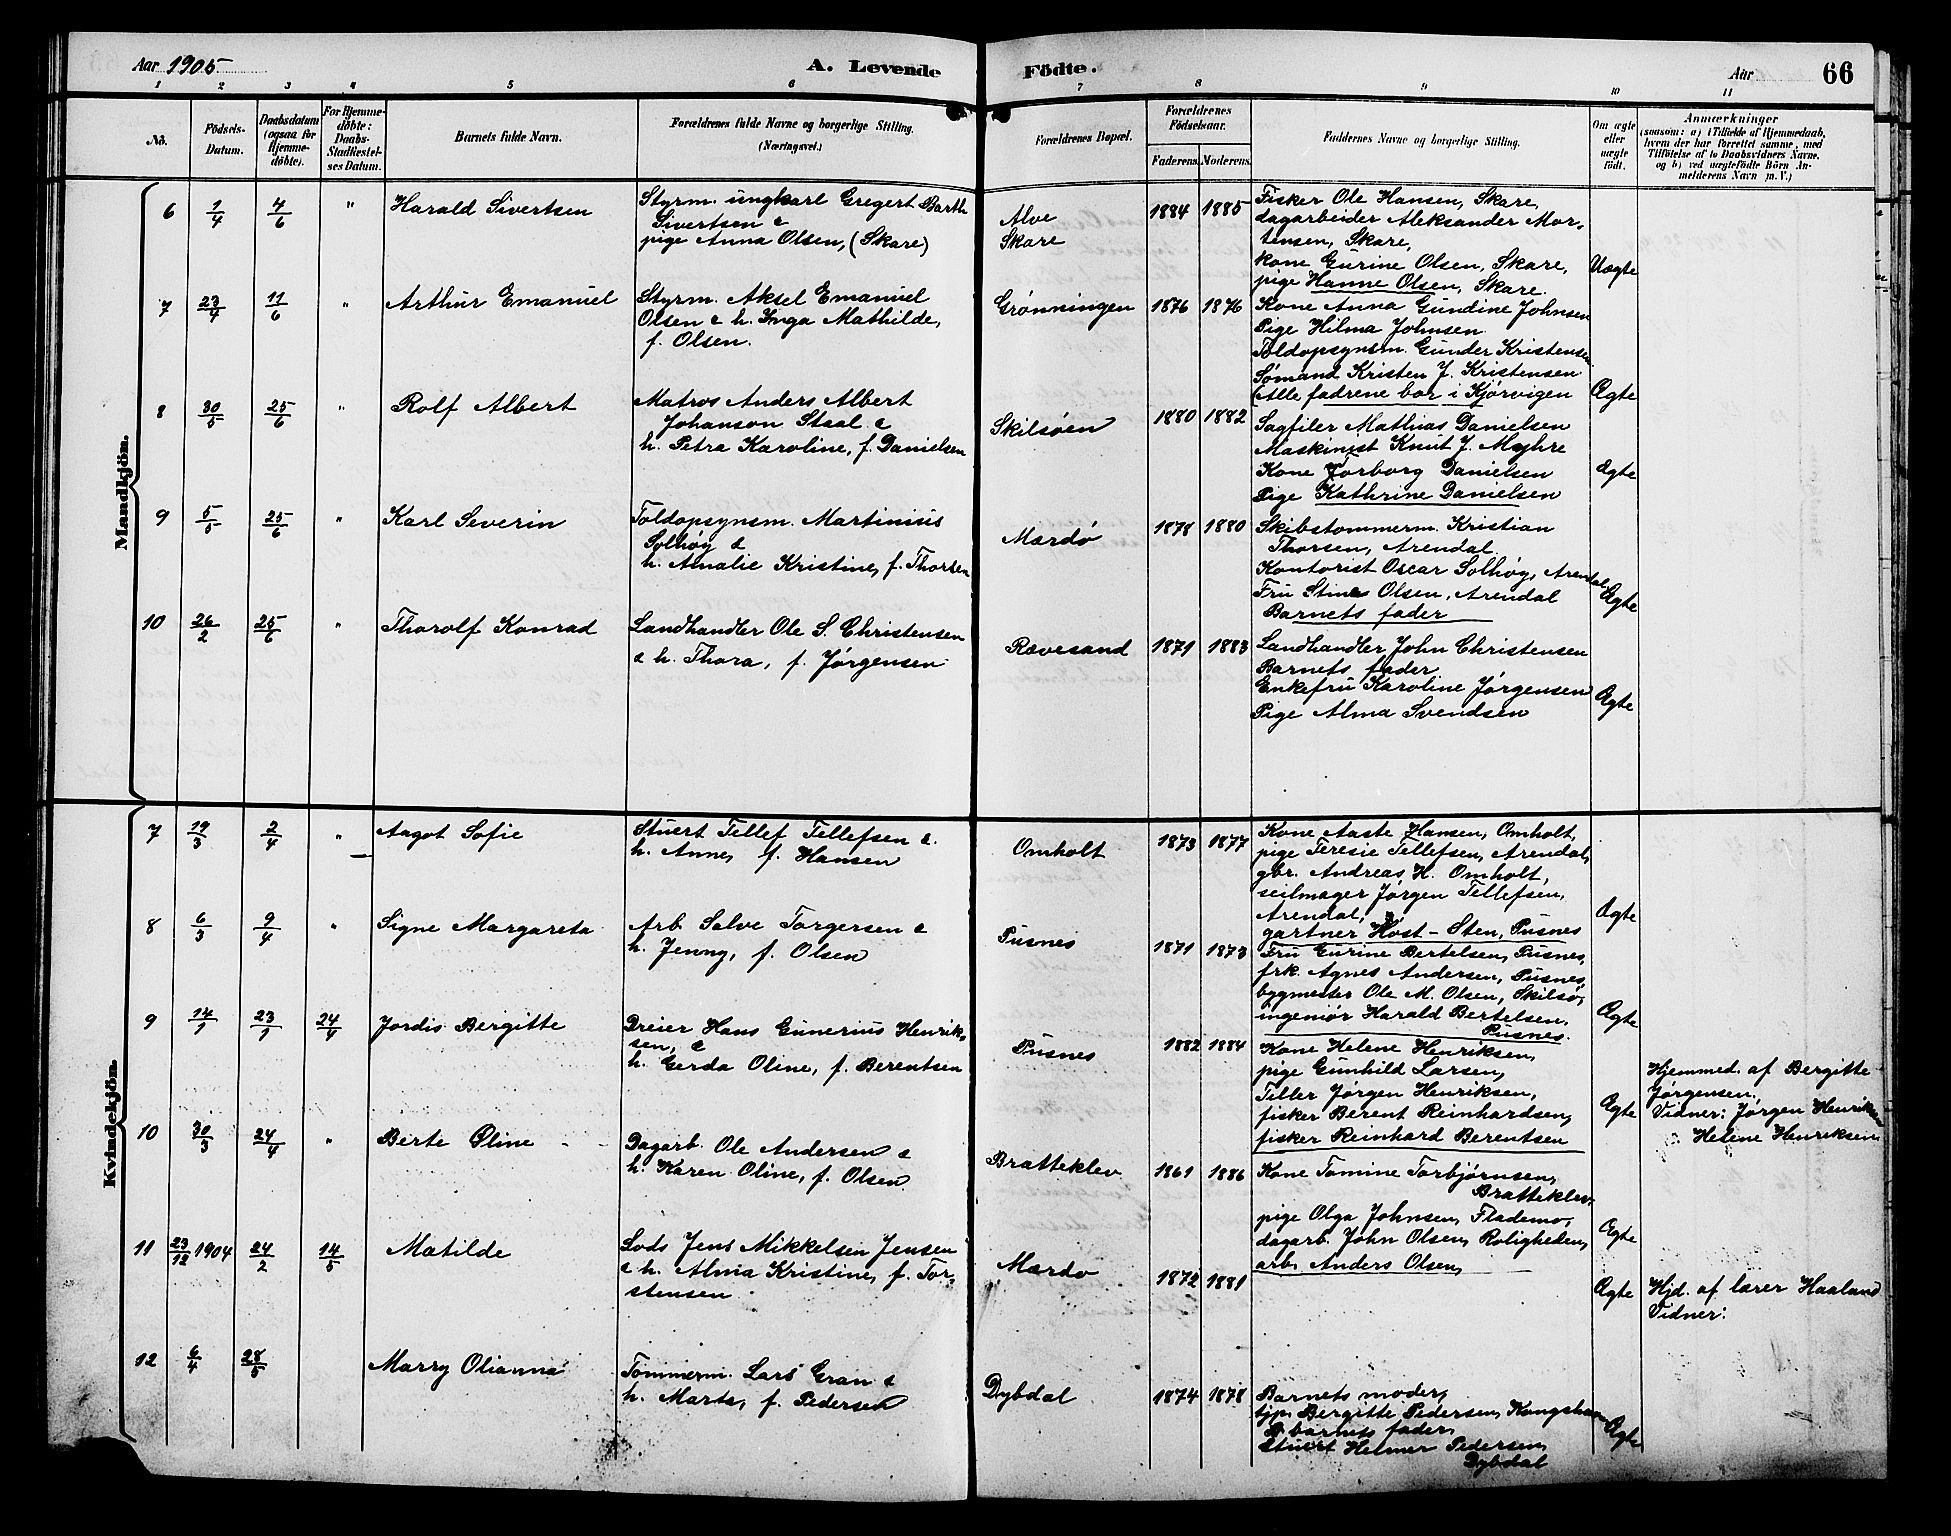 Aar 1905
A. Levende Födte.
Aar 66
1 2 3 4 5 6 7 8 9 10 11
No.
Födsels-Datum.
Daabsdatum (ogsaa for Hjemme-döbte).
For Hjemme-döbte: Daabs-Stadfæstel-ses Datum.
Barnets fulde Navn.
Forældrenes fulde Navne og borgerlige Stilling.
(Næringsvei.)
Forældrenes Bopæl.
Forældrenes Födselsaar.
Faderens. Moderens.
Faddernes Navne og borgerlige Stilling.
Om ægte eller uægte födt.
Anmærkninger
(saasom: a) i Tilfælde af Hjemmedaab,
hvem der har forrettet samme, med
Tilföielse af to Daabsvidners Navne.
og b) ved uægtefödte Börn An-
melderens Navn m. V.)
Mandkjön.
6 1/4 4/6 " Harald Sivertsen
Styrm. ungkarl Gregert Barth
Sivertsen &
pige Anna Olsen, (Skare)
Alve
Skare
1884 1885
Fisker Ole Hansen, Skare,
dagarbeider Aleksander Mor-
tensen, Skare,
kone Gurine Olsen, Skare,
pige Hanne Olsen, Skare.
Uægte
7 23/4 11/6 " Arthur Emanuel
Styrm. Aksel Emanuel
Olsen & h. Inga Mathilde,
f. Olsen.
Grønningen
1876 1876
Kone Anna Gundine Johnsen
Pige Hilma Johnsen
Toldopsynsm. Gunder Kristensen
Sømand Kristen J. Kristensen
(Alle fadrene bor i Kjørvigen
Ægte
8 30/5 25/6 " Rolf Albert
Matros Anders Albert
Johanson Staal &
h. Petra Karoline, f. Danielsen
Skilsøen
1880 1882
Sagfiler Mathias Danielsen
Maskinist Knut J. Myhre
Kone Jorborg Danielsen
Pige Kathrine Danielsen
Ægte
9 5/5 25/6 " Karl Severin
Toldopsynsm. Martinius
Solhøy &
h. Amalie Kristine, f. Thorsen
Mærdø
1878 1880
Skibstømmerm. Kristian
Thorsen, Arendal.
Kontorist Oscar Solhøy, Arendal,
Fru Stine Olsen, Arendal
Barnets fader
Ægte
10 26/2 25/6 " Thorolf Konrad
Landhandler Ole S. Christensen
& h. Thora, f. Jørgensen
Rævesand
1871 1883
Landhandler John Christensen
Barnets fader
Enkefru Karoline Jørgensen
Pige Alma Svendsen
Ægte
Kvindekjön.
7 19/3 2/4 " Aagot Sofie
Stuert Tellef Tellefsen &
h. Anne, f. Hansen
Omholt
1873 1877
Kone Aaste Hansen, Omholt,
pige Teresie Tellefsen, Arendal,
gbr. Andreas H. Omholt,
seilmager Jørgen Tellefsen,
Arendal,
gartner Høst-Sten, Pusnes
Ægte
8 6/3 9/4 " Signe Margareta
Arb. Salve Torgersen &
h. Jenny, f. Olsen
Pusnes
1871 1873
Fru Gurine Bertelsen, Pusnes,
frk. Agnes Andersen, Pusnes,
bygmester Ole M. Olsen, Skilsø,
ingeniør Harald Bertelsen,
Pusnes.
Ægte
9 14/1 23/1 24/4 Jordis Bergitte
Dreier Hans Gunerius Henrik-
sen, &
h. Gerda Oline, f. Berentsen
Pusnes
1882 1884
Kone Helene Henriksen,
pige Gunhild Larsen,
Tiller Jørgen Henriksen,
fisker Berent Reinhardsen,
fisker Reinhard Berentsen
Ægte
Hjemmed. af Bergitte
Jørgensen,
Vidner: Jørgen Henriksen
Helene Henriksen
10 30/3 24/4 " Berte Oline
Dagarb. Ole Andersen &
h. Karen Oline, f. Olsen
Bratteklev
1861 1886
Kone Tomine Torbjørnsen,
Bratteklev,
pige Olga Johnsen, Flademo,
dagarb. John Olsen, Roligheden,
arb. Anders Olsen,
Ægte
11 23/12 1904 24/2 14/5 Matilde
Lods Jens Mikkelsen Jensen
& h. Alma Kristine, f. Tor-
stensen
Mærdø
1872 1881
Ægte
Hjd. af lærer Haaland
Vidner:
12 6/4 28/5 Marry Olianna
Tømmerm. Lars Gran &
h. Marta, f. Pedersen
Dybdal
1874 1878
Barnets moder,
tjp. Bergitte Pedersen, Kongshavn
barnets fader,
Stuert Helmer Pedersen,
Dybdal
Ægte